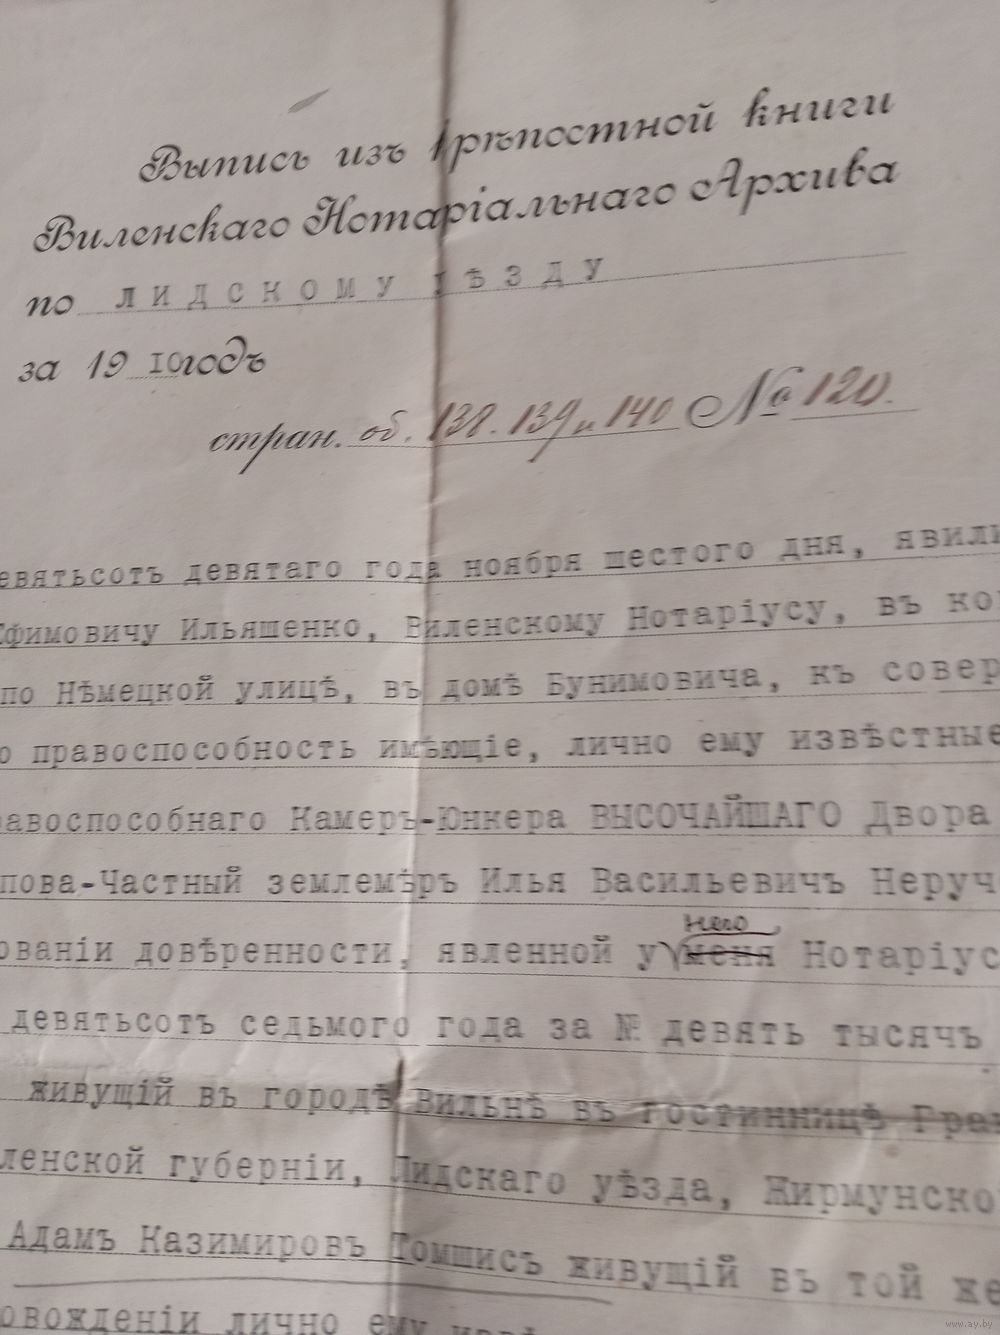 Выпись изъ Крѣпостной книги
Виленскаго Нотаріальнаго Архива
по ЛИДСКОМУ УѢЗДУ
за 1910 годъ
стран. об. 138. 139 и 140 № 120.
евятьсотъ девятаго года ноября шестого дня, явили
Ефимовичу Ильяшенко, Виленскому Нотаріусу, въ ко
по Нѣмецкой улицѣ, въ домѣ Бунимовича, къ совер
о правоспособность имѣющіе, лично ему извѣстные
равоспособнаго Камеръ-Юнкера ВЫСОЧАЙШАГО Двора
пова-Частный землемѣръ Илья Васильевичъ Неруч
него
ованіи довѣренности, явленной у меня Нотаріус
девятьсотъ седьмого года за № девять тысячъ
живущій въ городѣ Вильнѣ въ гостинницѣ Гран
ленской губерніи, Лидскаго уѣзда, Жирмунско
Адамъ Казимировъ Томшисъ живущій въ той же
овожденіи лично ему извѣ
www.ay.by